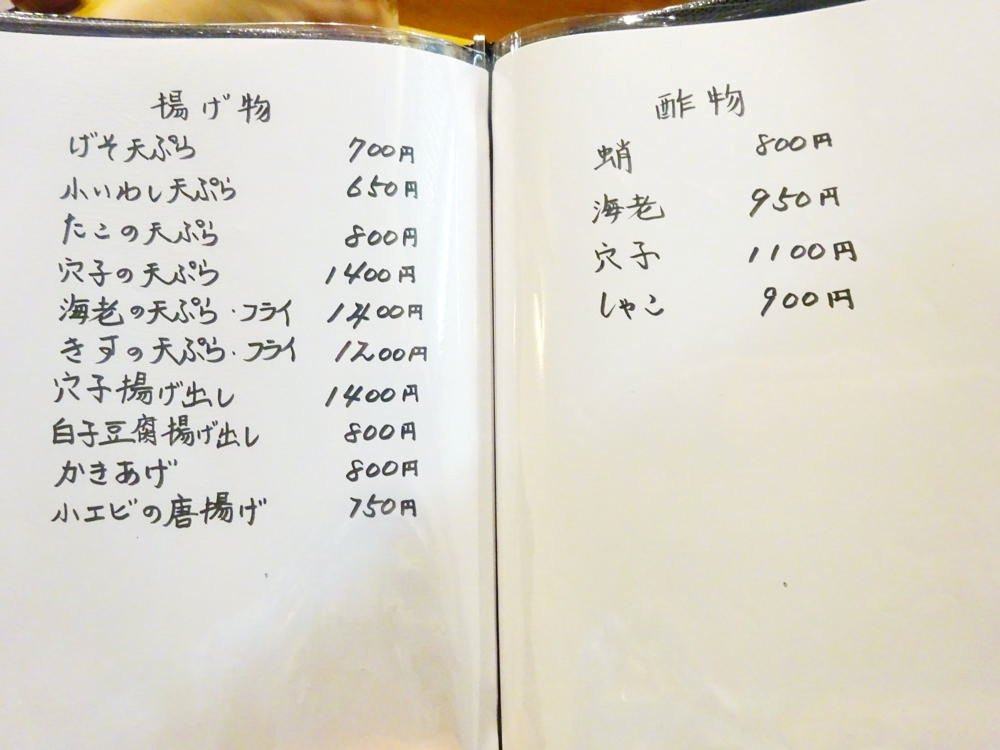 揚げ物
げそ天ぷら 700円
小いわし天ぷら 650円
たこの天ぷら 800円
穴子の天ぷら 1400円
海老の天ぷら・フライ 1400円
きすの天ぷら・フライ 1200円
穴子揚げ出し 1400円
白子豆腐揚げ出し 800円
かきあげ 800円
小エビの唐揚げ 750円
酢物
蛸 800円
海老 950円
穴子 1100円
しゃこ 900円